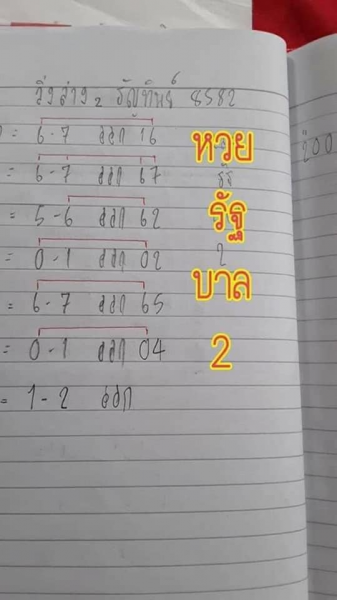 วิ่งล่าง 2 ธัญทิพย์ 8582
= 6-7 ออก 16
= 6-7 ออก 67
= 5-6 ออก 62
= 0-1 ออก 02
= 6-7 ออก 65
= 0-1 ออก 04
= 1-2 ออก
หวย
รัฐ
บาล
2
200